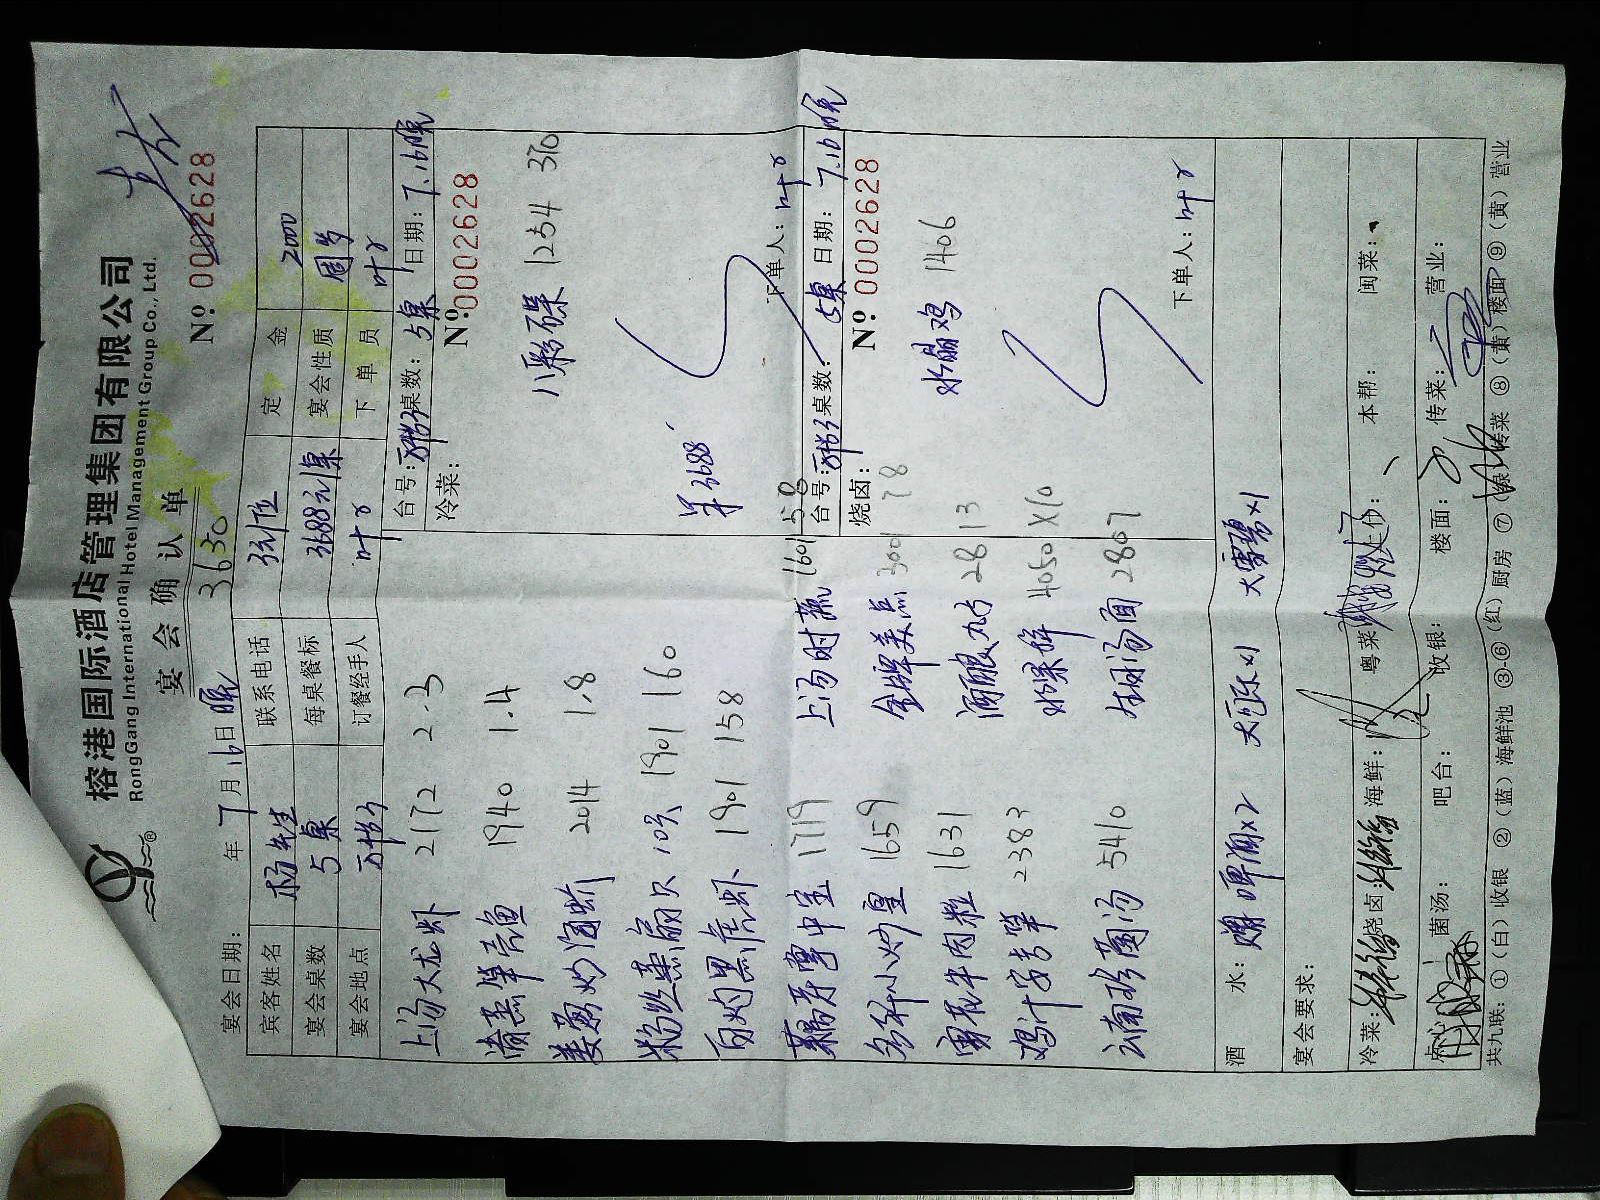 榕港国际酒店管理集团有限公司
RongGang International Hotel Management Group Co., Ltd.
宴会确认单
宴会日期： 年 7 月 16 日 晚 3630 Nº 0002628
宾客姓名 杨先生 联系电话 定金 2000
宴会桌数 5桌 每桌餐标 3688元/桌 宴会性质 周岁
宴会地点 订餐经手人 叶 下单员 叶
台号： 桌数：5桌 日期：7.16晚
冷菜： Nº 0002628
八彩碟 1254 310
单3688
下单人：叶
上汤大龙虾 2172 2.3
清蒸笋壳鱼 1940 1.4
姜葱炒 2014 1.8
粉丝蒸扇贝 10只 1901 160
白灼黑虎虾 1901 158
1719
小炒皇 1659
牛肉粒 1631
鸡汁 2383
云南珍菌汤 5410
上汤时蔬 1601 58
金牌美点 3001 78
酒酿丸子 2813
水果拼 4050 X10
汤面 2807
台号： 桌数：5桌 日期：7.16晚
烧卤： Nº 0002628
水晶鸡 1406
下单人：叶
酒水：赠 啤酒x2 大可乐x1 大雪碧x1
宴会要求：
冷菜： 烧卤： 海鲜： 粤菜： 本帮： 闽菜：
点心： 菌汤： 吧台： 收银： 楼面： 传菜： 营业：
共九联：①（白）收银 ②（蓝）海鲜池 ③-⑥（红）厨房 ⑦（绿）传菜 ⑧（黄）楼面 ⑨（黄）营业